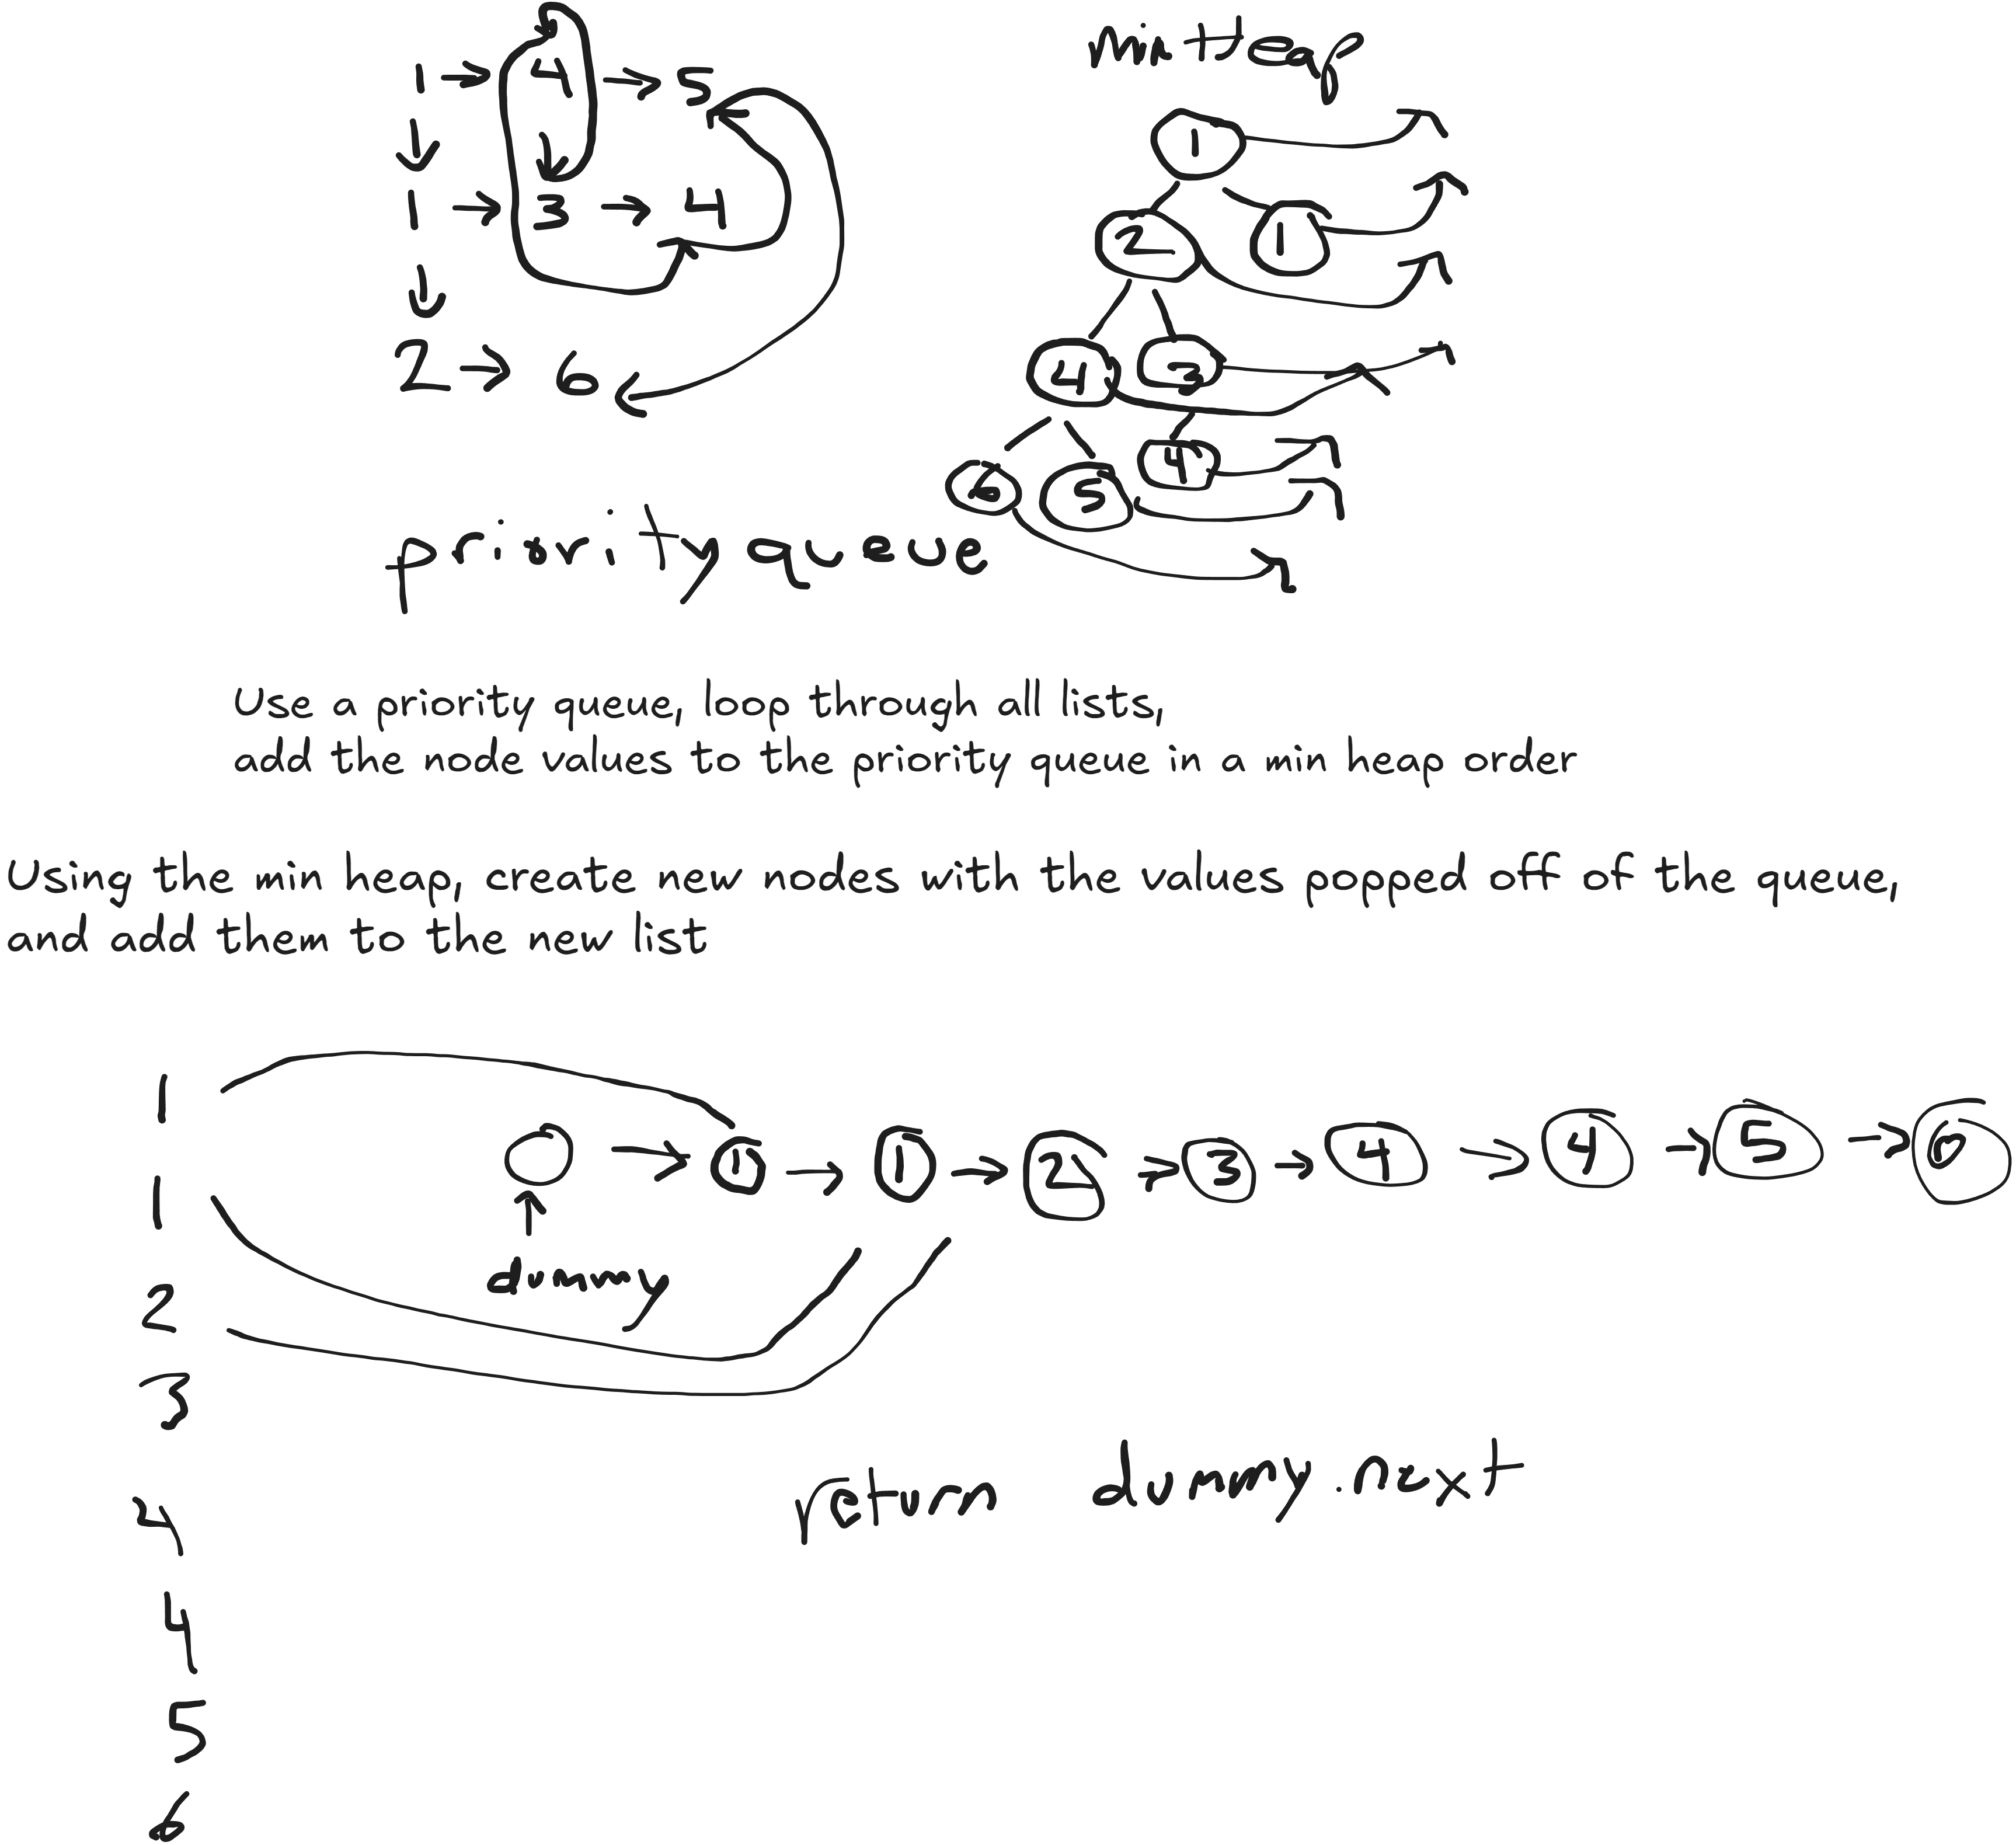 1 → 4 → 5
1 → 3 → 4
2 → 6
min Heap
1
2 1
4 3
6 5 4
priority queue
Use a priority queue, loop through all lists,
add the node values to the priority queue in a min heap order
Using the min heap, create new nodes with the values popped off of the queue,
and add them to the new list
1
1
2
3
4
4
5
6
→ 1 → 1 → 2 → 3 → 4 → 4 → 5 → 6
dummy
return dummy.next